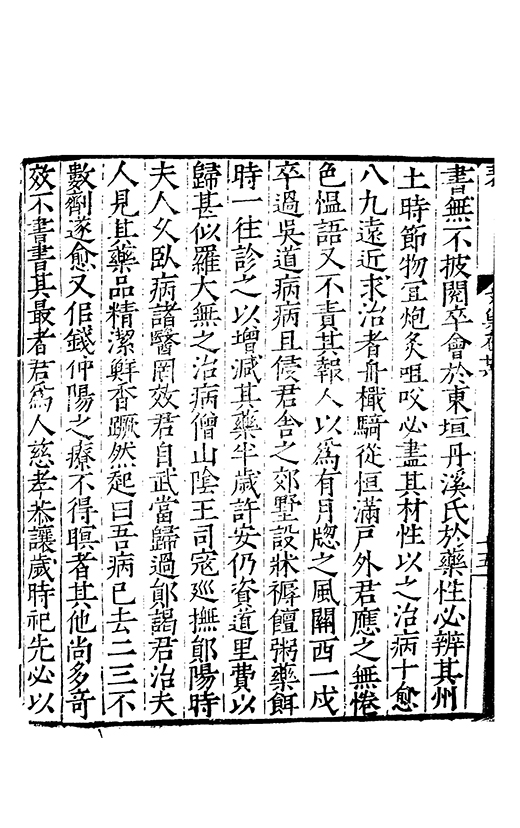 書無不披閱卒會於東垣丹溪氏於藥性必辨其州
土時節物宜炮炙咀㕮必盡其材性以之治病十愈
八九遠近求治者舟檝騎從恒滿戸外君應之無倦
色慍語又不責其報人以爲有月牕之風關西一戍
卒過吳道病病且侵君舍之郊墅設牀褥饘粥藥餌
時一往診之以增減其藥半歲許安仍資道里費以
歸甚似羅大無之治病僧山陰王司寇廵撫鄖陽時
夫人久臥病諸醫罔效君自武當歸過鄖謁君治夫
人見其藥品精潔鮮香蹶然起曰吾病已去二三不
數劑遂愈又佀錢仲陽之療不得瞑者其他尚多奇
效不書書其最者君爲人慈孝恭讓歲時祀先必以